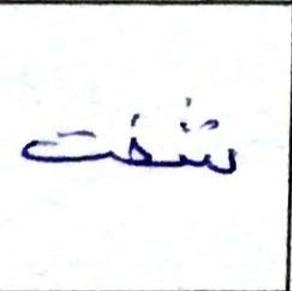 شفت